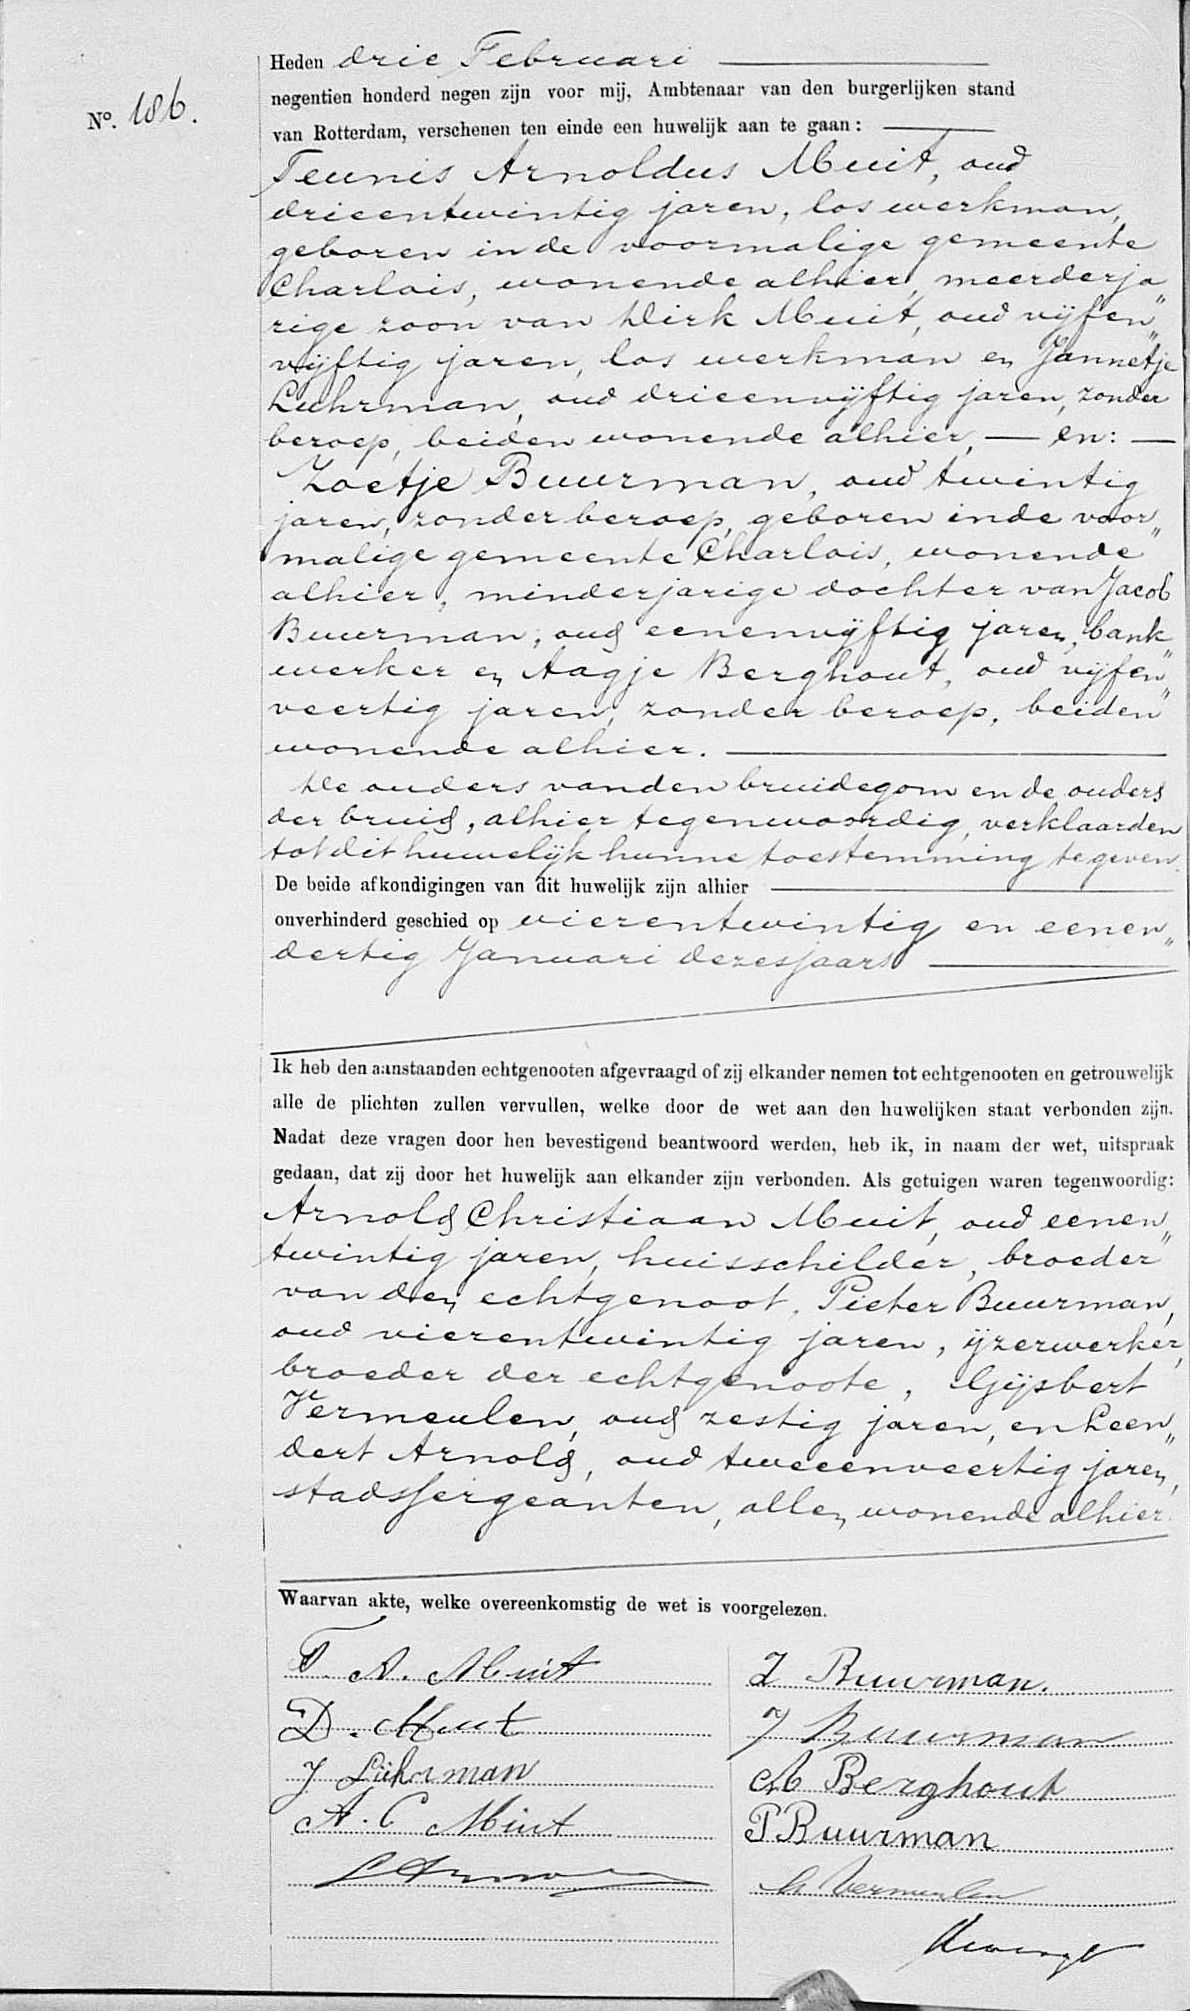 Heden drie Februari
negentien honderd negen zijn voor mij, Ambtenaar van den burgerlijken stand
No. 186.
van Rotterdam, verschenen ten einde een huwelijk aan te gaan:
Teunis Arnoldus Muit, oud
drieentwintig jaren, los werkman,
geboren in de voormalige gemeente
Charlois, wonende alhier, meerderja
rige zoon van Dirk Muit, oud vijfen„
vijftig jaren, los werkman en Jannetje
Luhrman, oud drieenvijftig jaren, zonder
beroep, beiden wonende alhier, — en: —
Zoetje Buurman, oud twintig
jaren, zonder beroep, geboren in de voor„
malige gemeente Charlois, wonende
alhier, minderjarige dochter van Jacob
Buurman, oud eenenvijftig jaren, bank„
werker en Aagje Berghout, oud vijfen„
veertig jaren, zonder beroep, beiden
wonende alhier.
De ouders van den bruidegom en de ouders
der bruid, alhier tegenwoordig, verklaarden
tot dit huwelijk hunne toestemming te geven.
De beide afkondigingen van dit huwelijk zijn alhier
onverhinderd geschied op vierentwintig en eenen„
dertig Januari dezes jaars
Ik heb den aanstaanden echtgenooten afgevraagd of zij elkander nemen tot echtgenooten en getrouwelijk
alle de plichten zullen vervullen, welke door de wet aan den huwelijken staat verbonden zijn.
Nadat deze vragen door hen bevestigend beantwoord werden, heb ik, in naam der wet, uitspraak
gedaan, dat zij door het huwelijk aan elkander zijn verbonden. Als getuigen waren tegenwoordig:
Arnold Christiaan Muit, oud eenen„
twintig jaren, huisschilder, broeder
van den echtgenoot, Pieter Buurman,
oud vierentwintig jaren, ijzerwerker,
broeder der echtgenoote, Gijsbert
Vermeulen, oud zestig jaren, en Leen„
dert Arnold, oud tweeenveertig jaren,
stadssergeanten, allen wonende alhier.
Waarvan akte, welke overeenkomstig de wet is voorgelezen.
T. A. Muit
Z Buurman.
D. Muit
J Buurman
J Lührman
A Berghout
A. C Muit
P Buurman
L Arnold
G Vermeulen